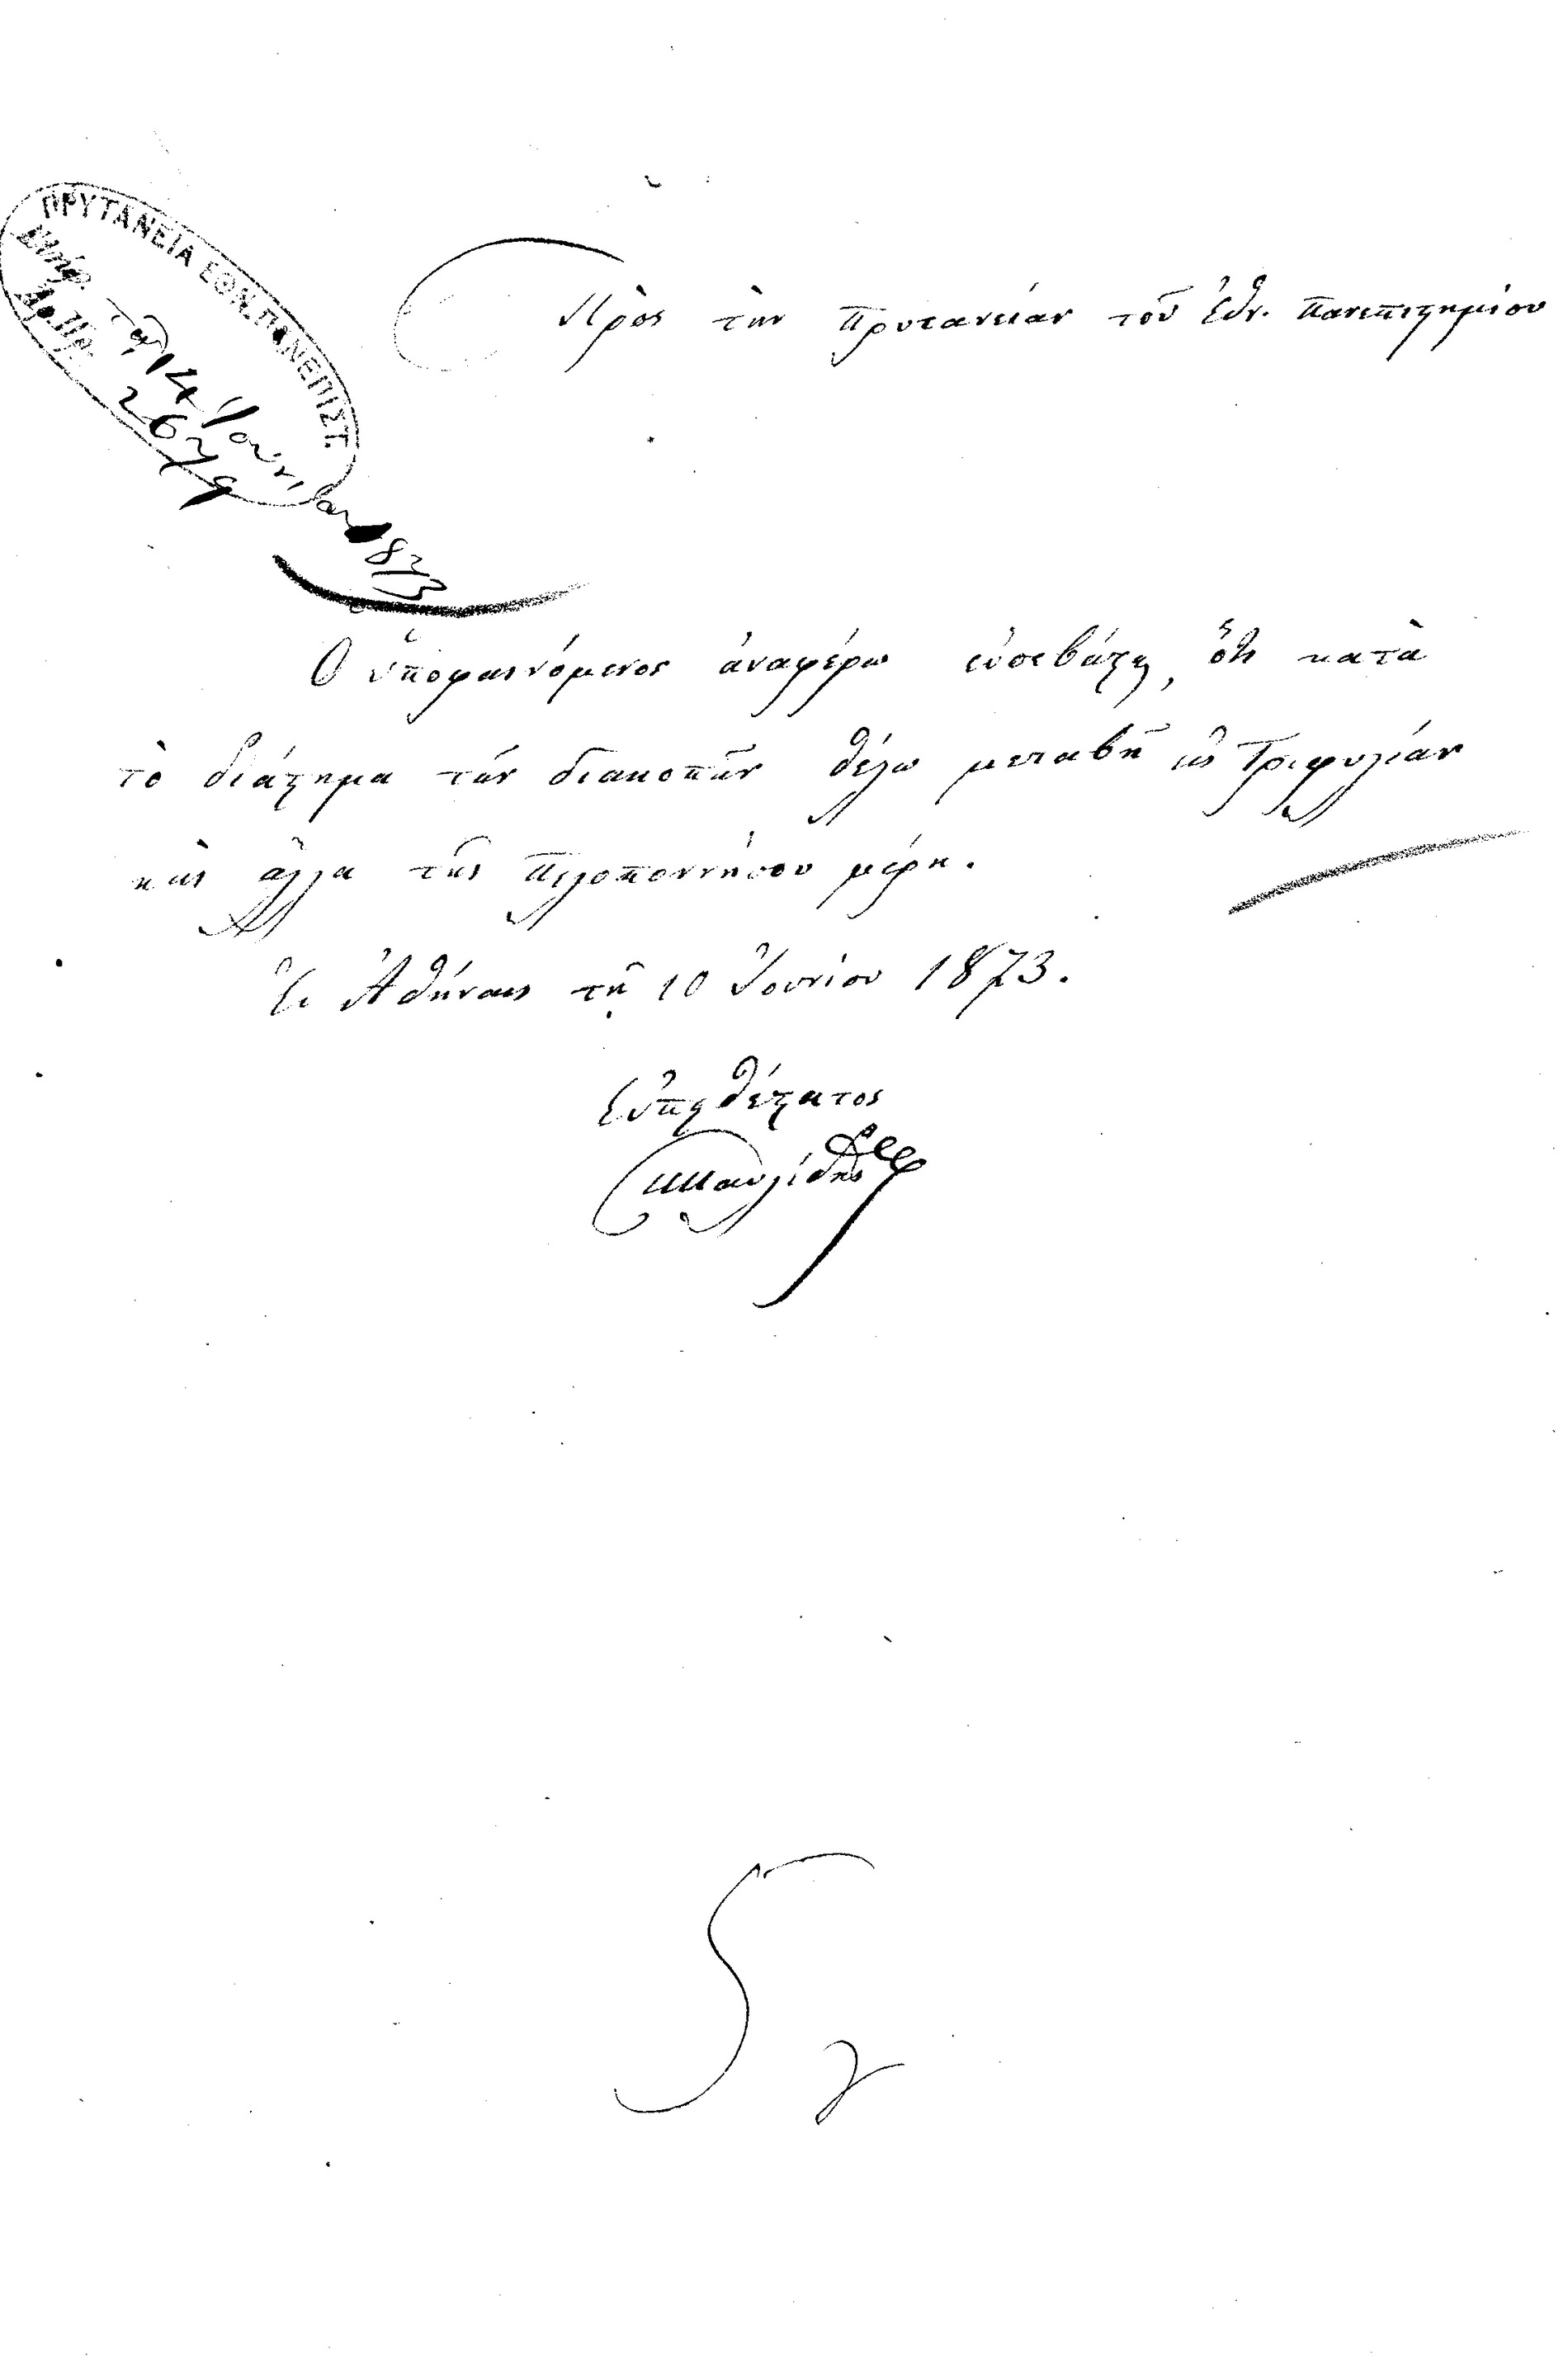 ΠΡΥΤΑΝΕΙΑ ΕΘΝ. ΠΑΝΕΠΙΣΤ.
τῇ 14 Ἰουνίου 1873
Ἀρ. Πρ.
Πρὸς τὴν Πρυτανείαν τοῦ Ἐθν. Πανεπιστημίου
Ὁ ὑποφαινόμενος ἀναφέρω εὐσεβάστως, ὅτι κατὰ
τὸ διάστημα τῶν διακοπῶν θέλω μεταβῆ εἰς Τριφυλίαν
καὶ ἄλλα τῆς Πελοποννήσου μέρη.
Ἐν Ἀθήναις τῇ 10 Ἰουνίου 1873.
Εὐπειθέστατος
Παυλίδης